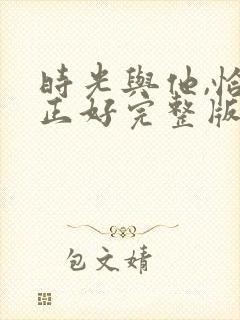 時光與他,恰
正好完整版
包文婧